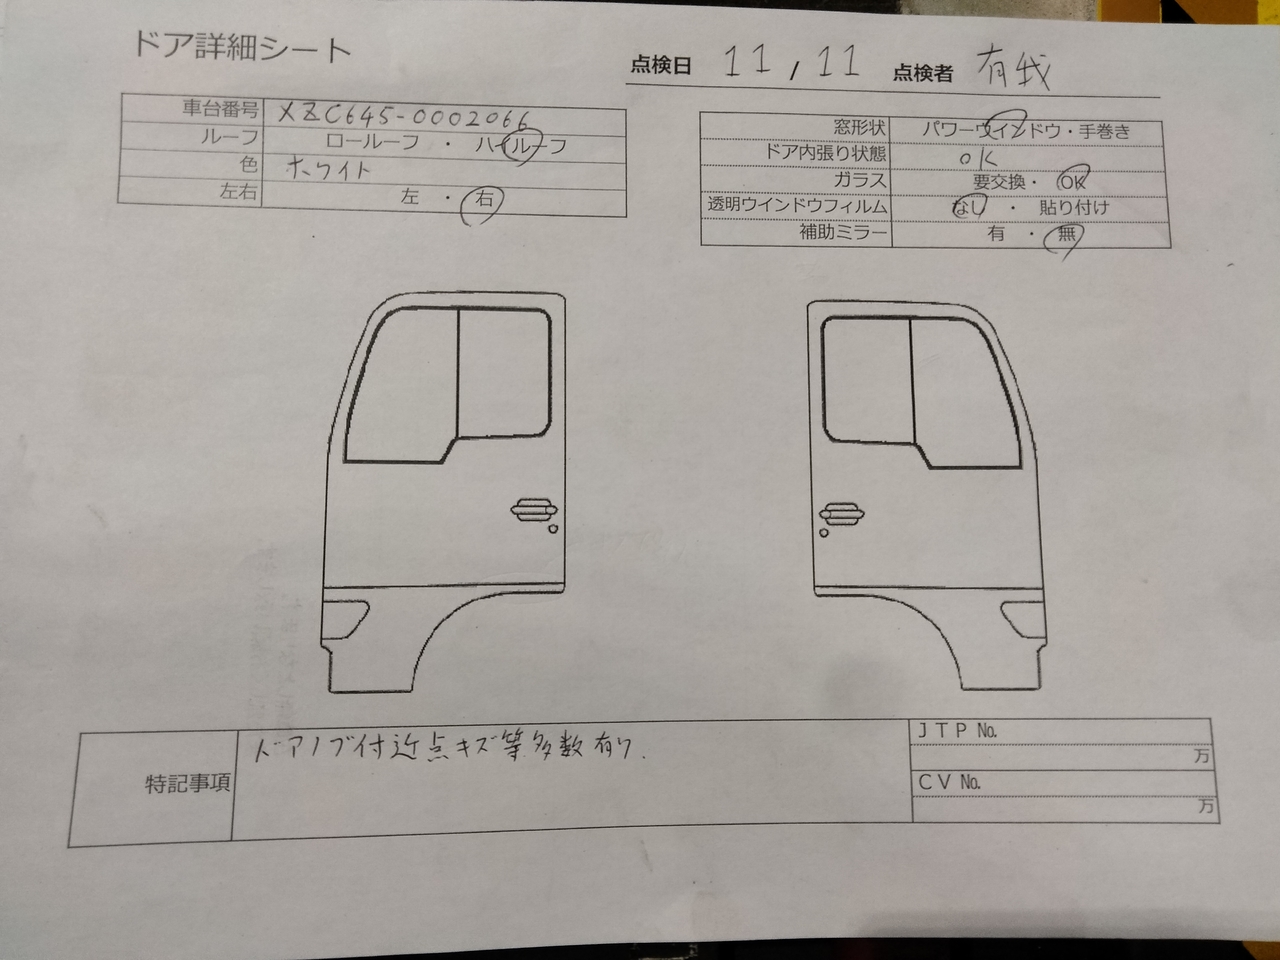 ドア詳細シート
点検日 11 / 11 点検者 有我
車台番号 XZC645-0002066
ルーフ ロールーフ ・ ハイルーフ
色 ホワイト
左右 左 ・ 右
窓形状 パワーウインドウ・手巻き
ドア内張り状態 OK
ガラス 要交換・ OK
透明ウインドウフィルム なし ・ 貼り付け
補助ミラー 有 ・ 無
特記事項 ドアノブ付近点キズ等多数有り.
JTP №
万
CV №
万